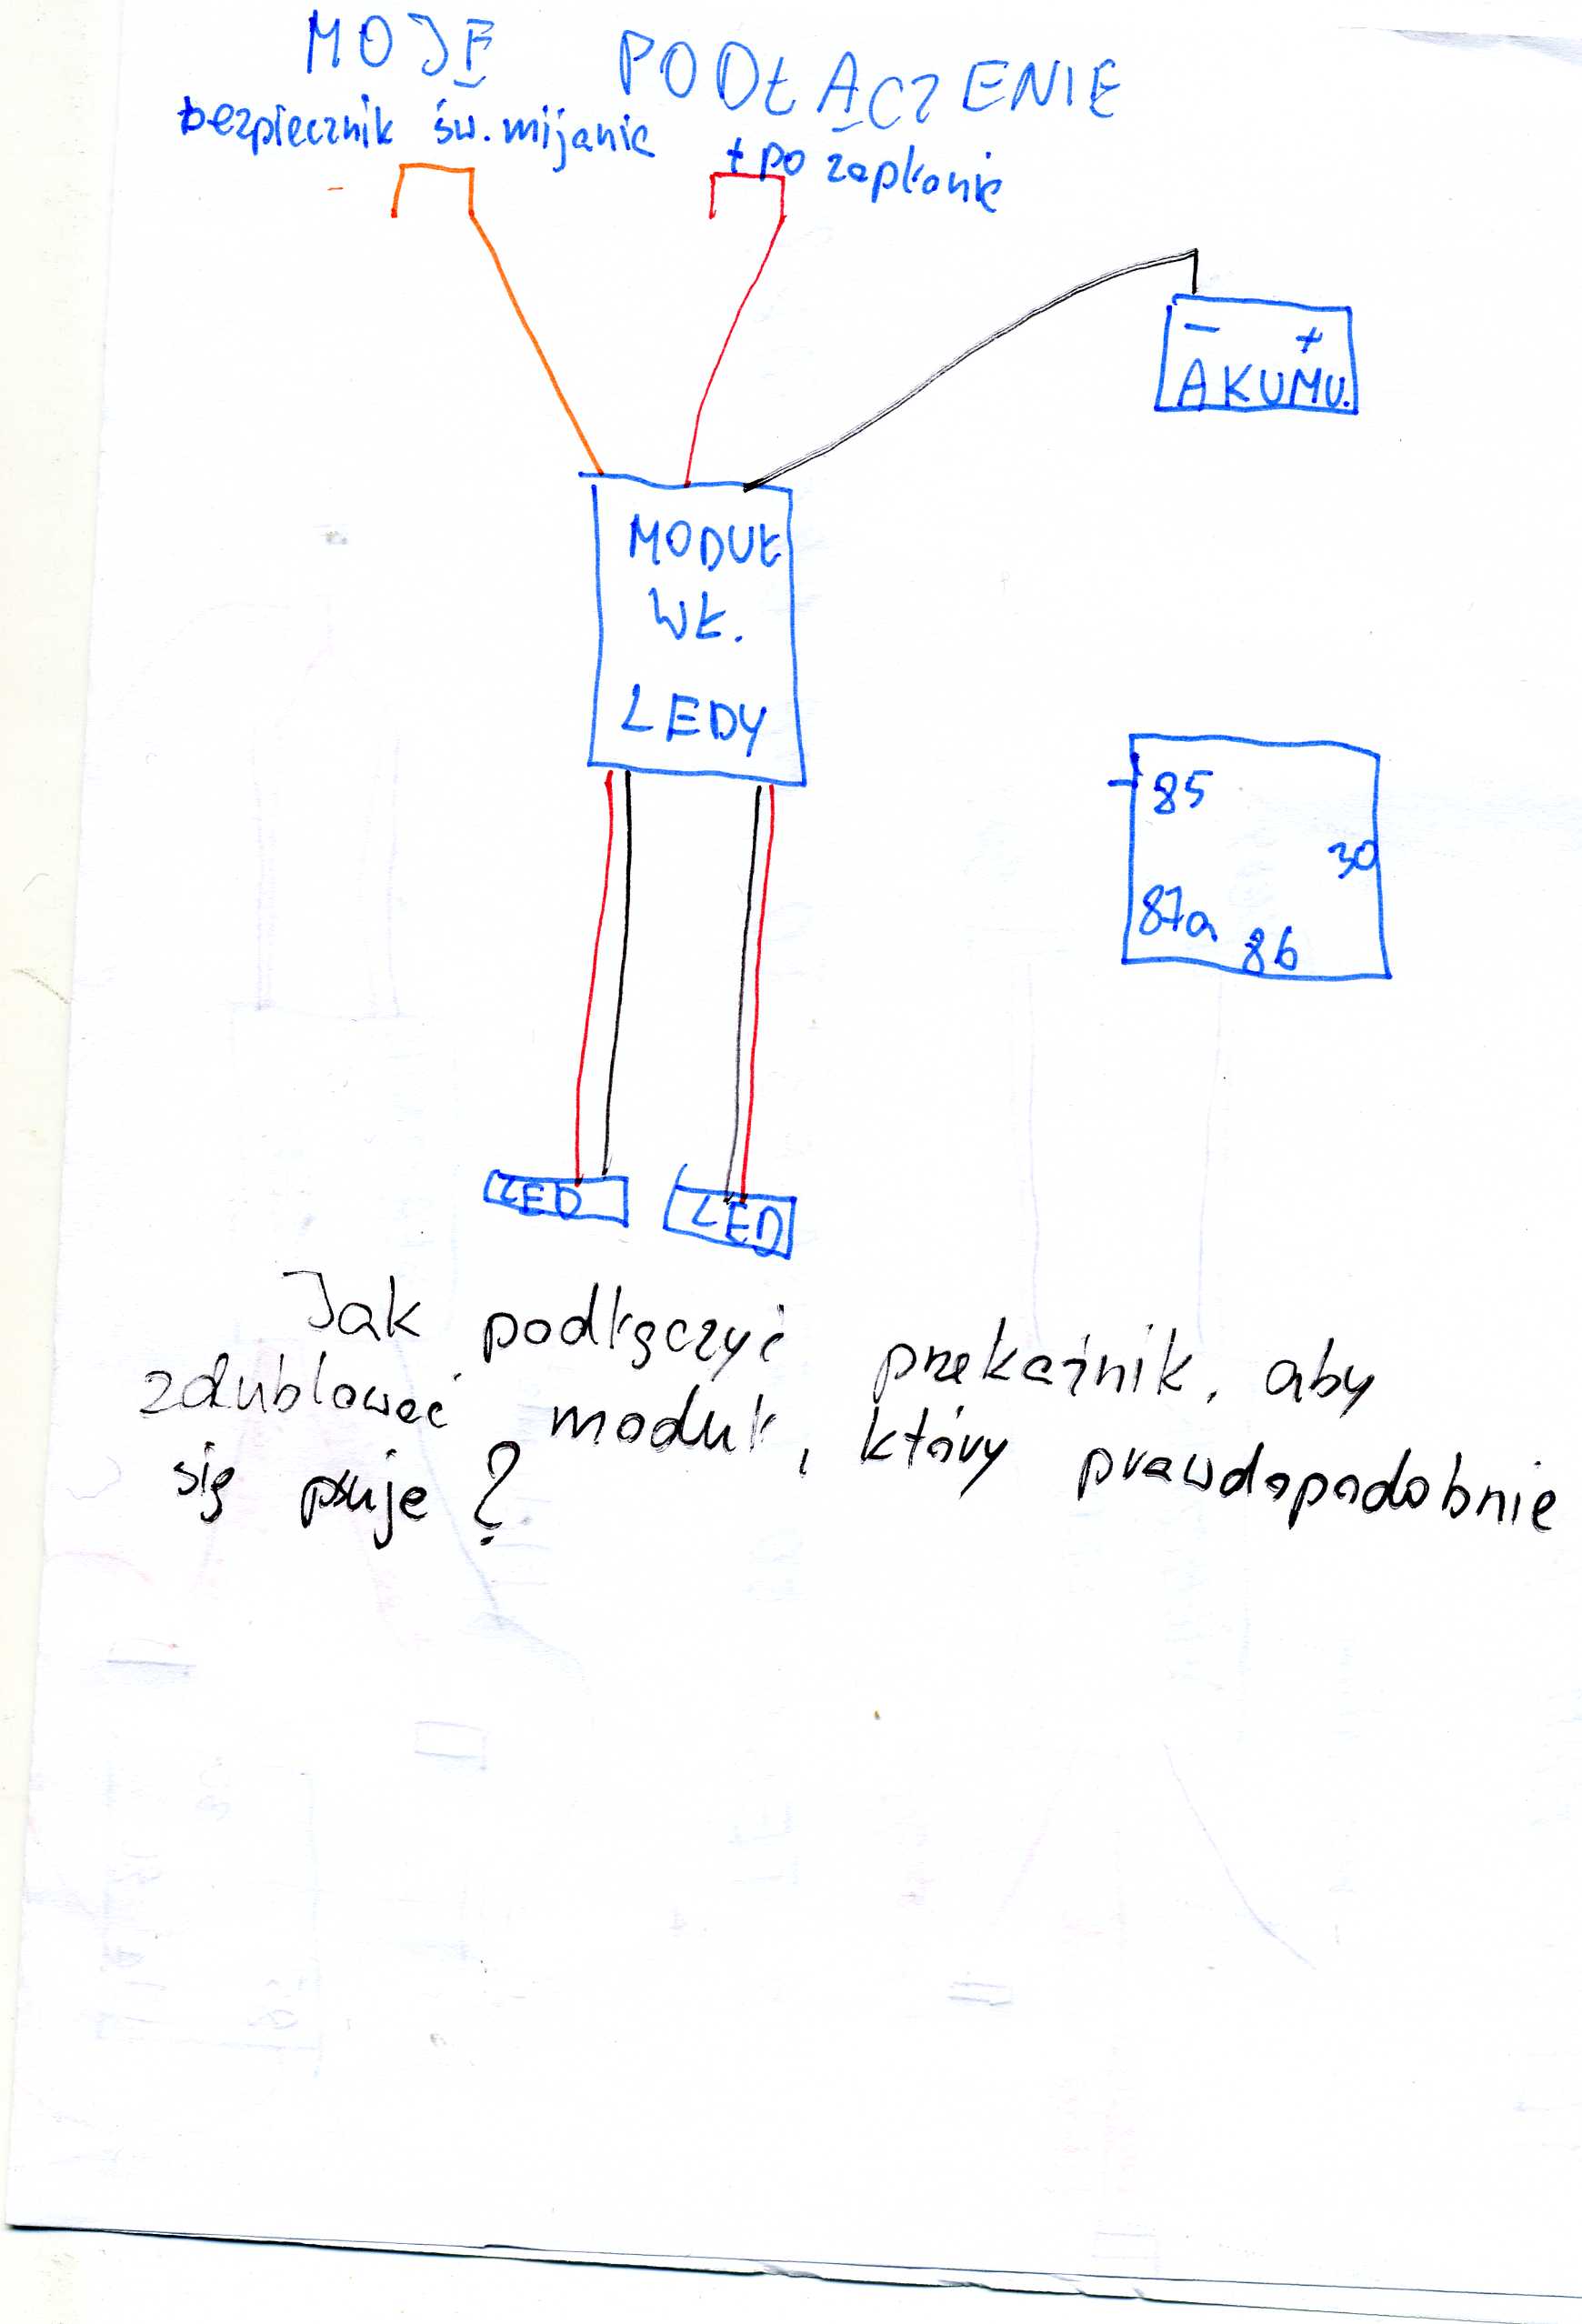 MOJE PODŁĄCZENIE
bezpiecznik św. mijania
+ po zapłonie
- +
AKUMU.
MODUŁ
WŁ.
LEDY
85
30
87a
86
LED LED
Jak podłączyć przekaźnik, aby
zdublować moduł, który prawdopodobnie
się psuje?